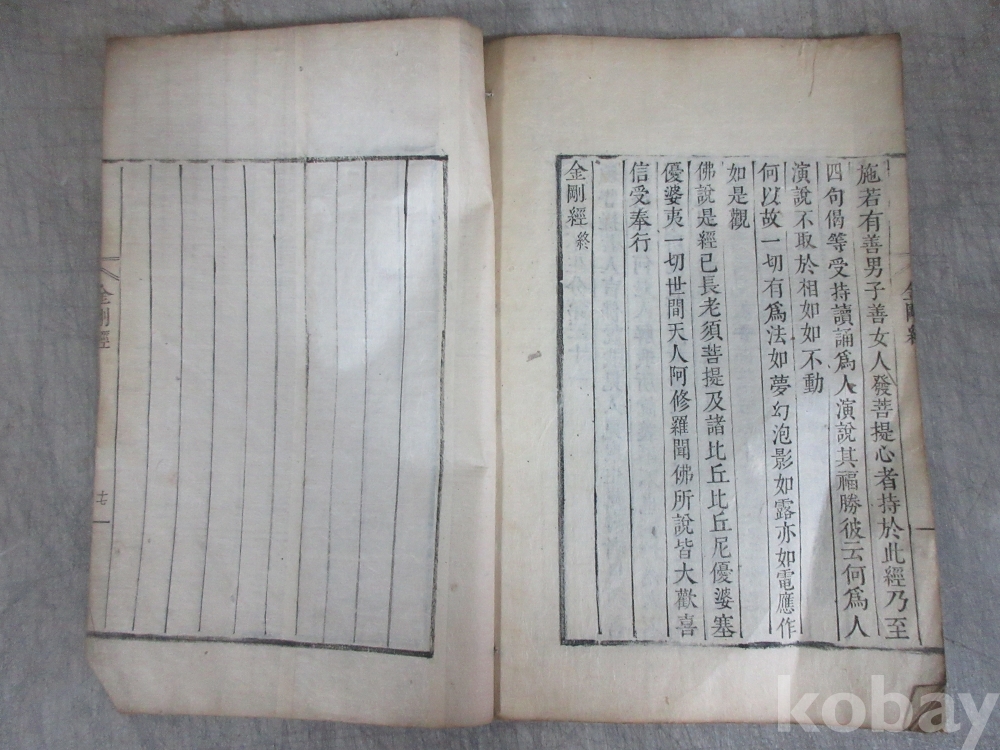 施若有善男子善女人發菩提心者持於此經乃至
四句偈等受持讀誦爲人演說其福勝彼云何爲人
演說不取於相如如不動
何以故一切有爲法如夢幻泡影如露亦如電應作
如是觀
佛說是經已長老須菩提及諸比丘比丘尼優婆塞
優婆夷一切世間天人阿修羅聞佛所說皆大歡喜
信受奉行
金剛經 終
金剛經
金剛經
kobay